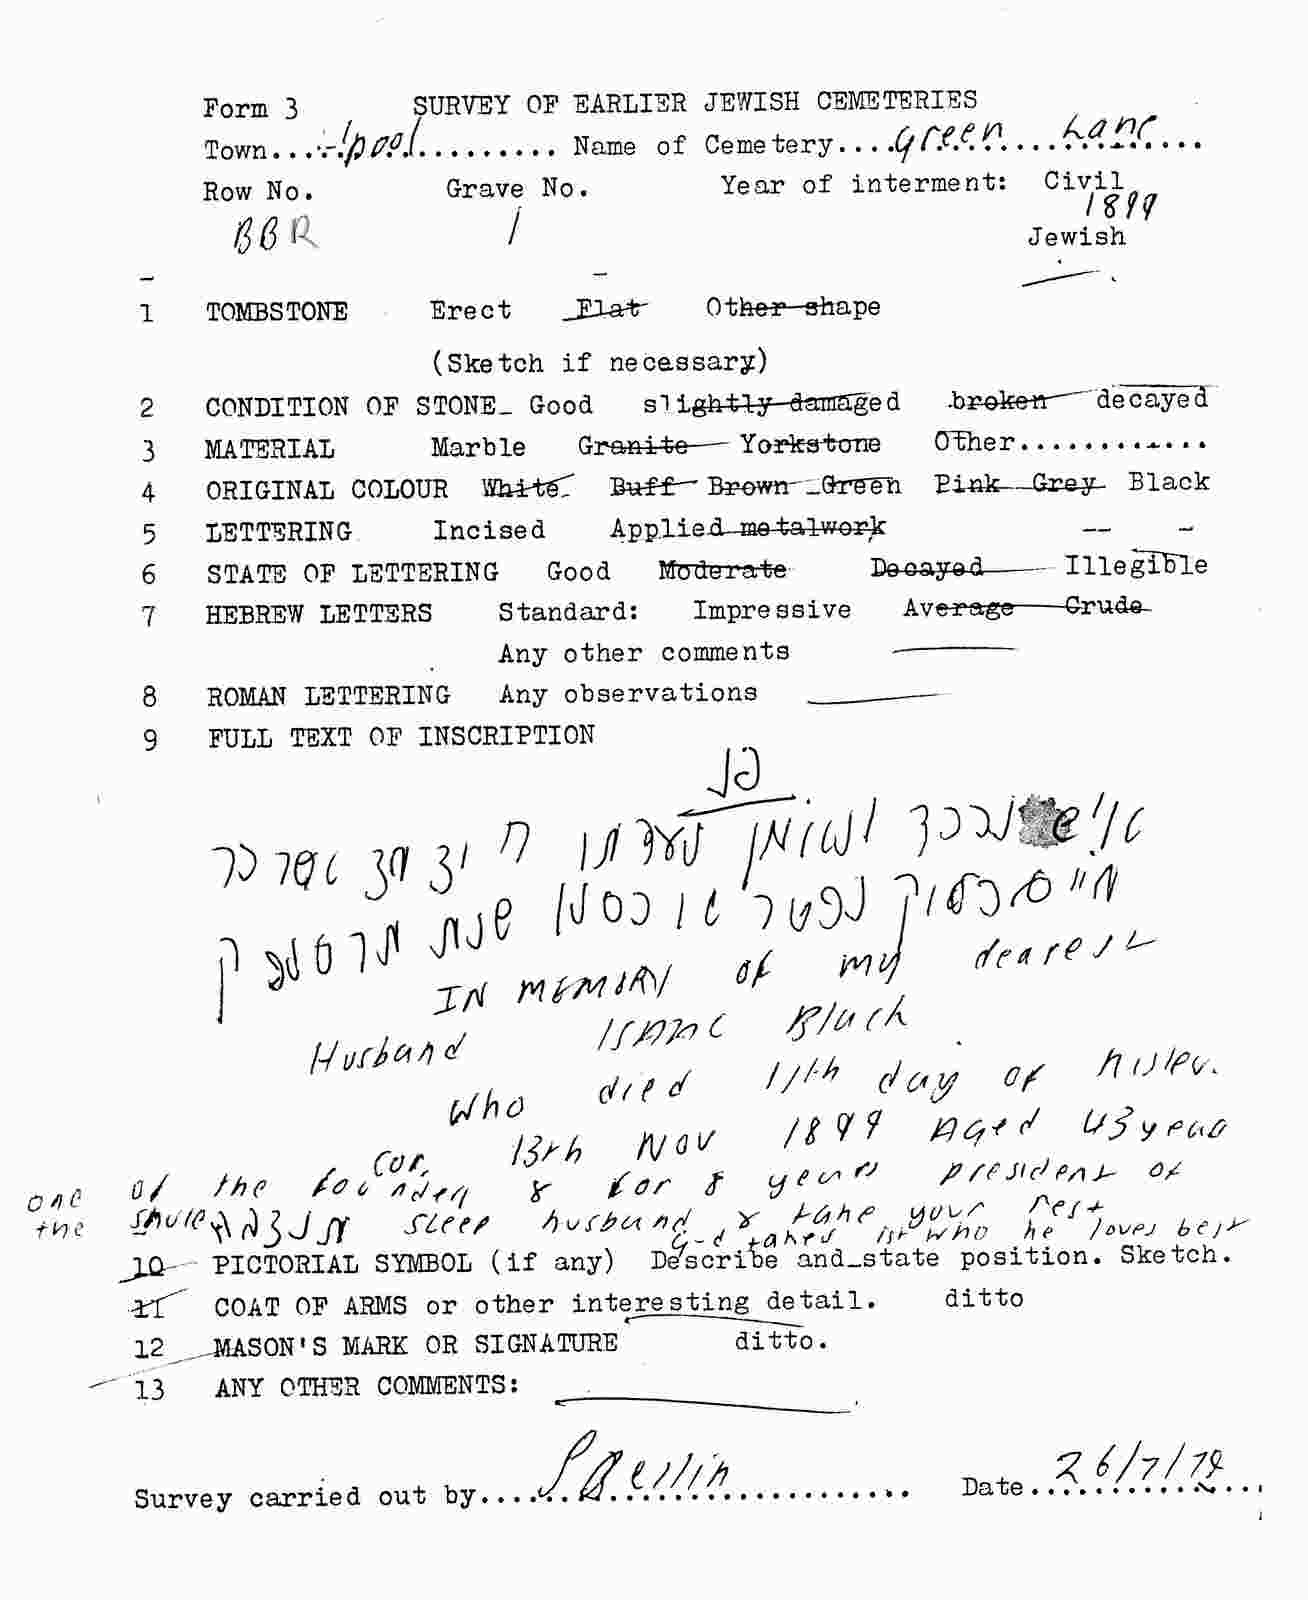 Form 3 SURVEY OF EARLIER JEWISH CEMETERIES
Town....l'pool......... Name of Cemetery....Green Lane....
Row No. Grave No. Year of interment: Civil
BBR 1 1899
Jewish
1 TOMBSTONE Erect Flat Other shape
(Sketch if necessary)
2 CONDITION OF STONE Good slightly damaged broken decayed
3 MATERIAL Marble Granite Yorkstone Other............
4 ORIGINAL COLOUR White Buff Brown Green Pink Grey Black
5 LETTERING Incised Applied metalwork
6 STATE OF LETTERING Good Moderate Decayed Illegible
7 HEBREW LETTERS Standard: Impressive Average Crude
Any other comments
8 ROMAN LETTERING Any observations
9 FULL TEXT OF INSCRIPTION
פנ
איש נכבד ונאמן
נפטר יא כסלו שנת
IN MEMORY of my dearest
Husband ISAAC Black
who died 11th day of Kislev.
13th Nov 1899 Aged 43 years
one of the founders & for 8 years president of
the shule תנצבה sleep husband & take your rest
G-d takes 1st who he loves best
10 PICTORIAL SYMBOL (if any) Describe and state position. Sketch.
11 COAT OF ARMS or other interesting detail. ditto
12 MASON'S MARK OR SIGNATURE ditto.
13 ANY OTHER COMMENTS:
Survey carried out by......S Berlin.................. Date 26/7/79